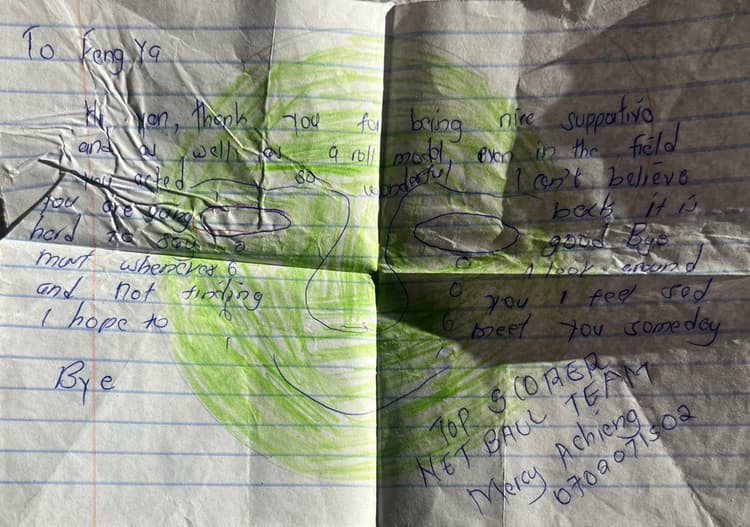 To Feng Ya
Hi yan, thank you for being nice supportivo
and as well as a roll model even in the field
you acted so wonderful I can't believe
you are going back it is
hard to say good Bye
mart whenever I look around
and not finding you I feel sad
I hope to meet you someday
Bye
TOP SCORER
NET BALL TEAM
Mercy Achieng
0709071502